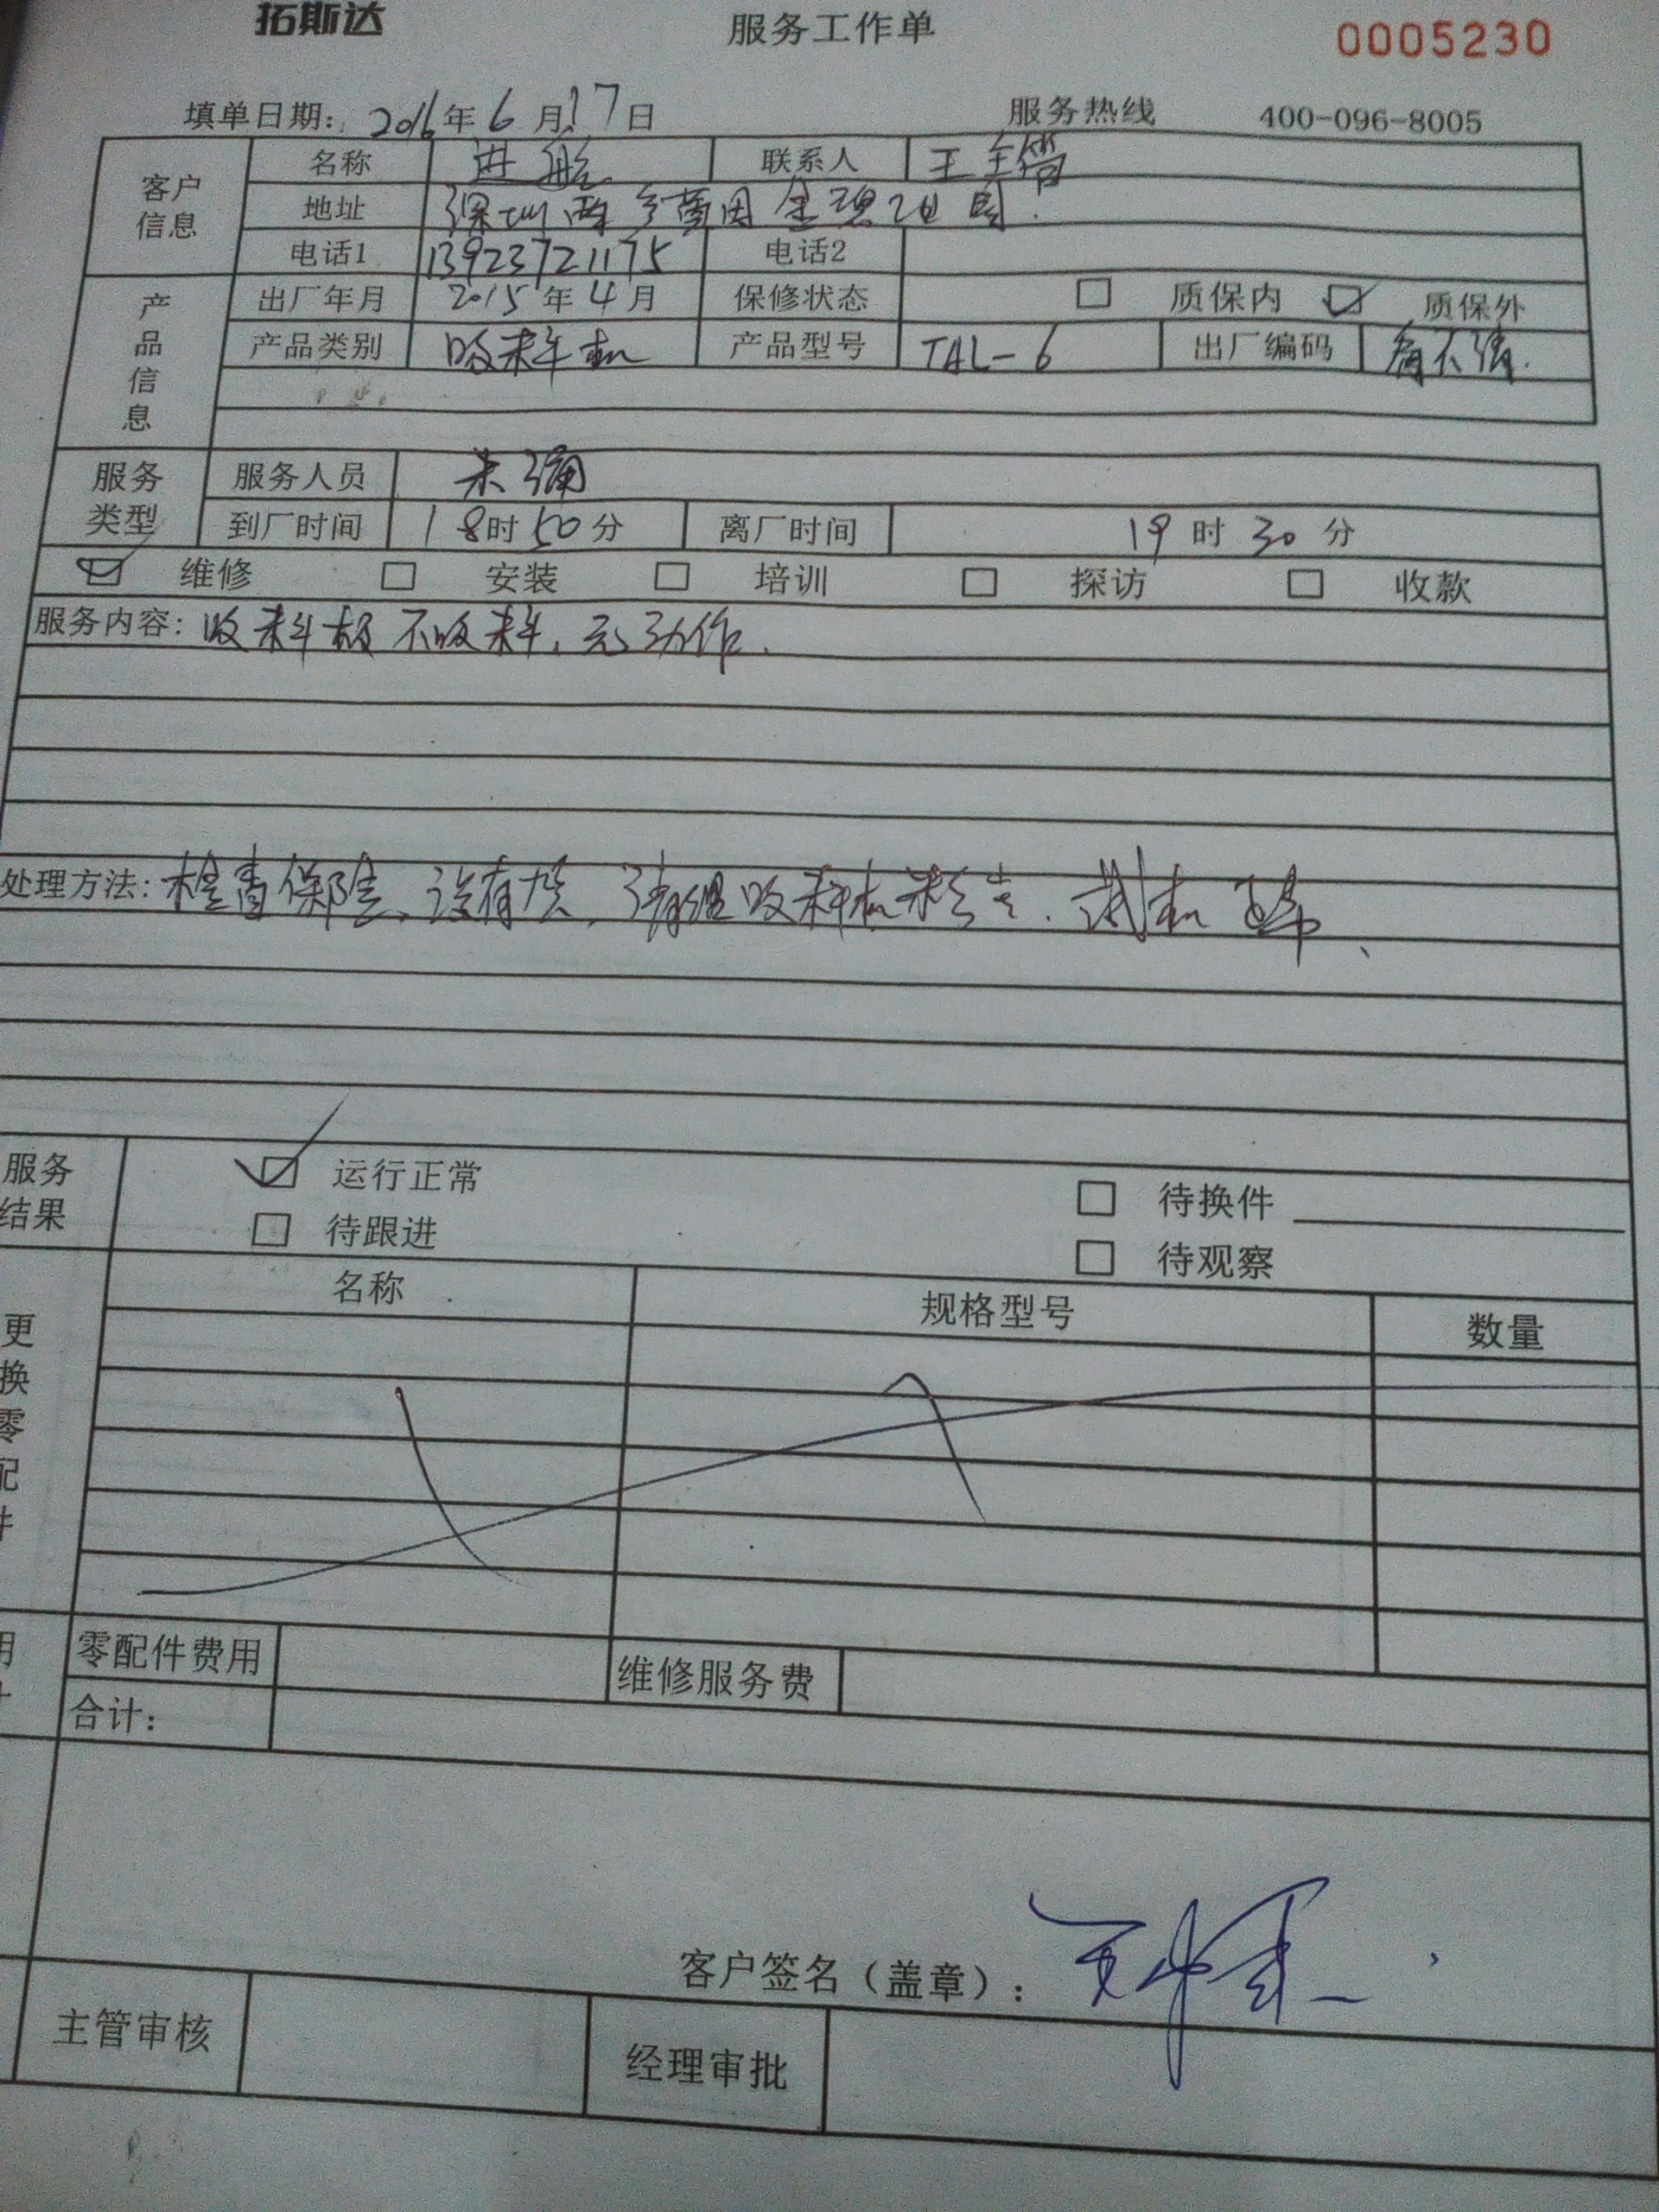 拓斯达
服务工作单
0005230
填单日期: 2016年6月17日
服务热线 400-096-8005
客户信息
名称 进航 联系人 王主管
地址 深圳西乡
电话1 13923721175 电话2
产品信息
出厂年月 2015年4月 保修状态 □ 质保内 ☑ 质保外
产品类别 吸料机 产品型号 TAL-6 出厂编码 看不清.
服务类型
服务人员 朱
到厂时间 18时50分 离厂时间 19时30分
☑ 维修 □ 安装 □ 培训 □ 探访 □ 收款
服务内容: 吸料机不吸料, 无动作.
处理方法: 检查保险、没有坏, 清理吸料机粉尘. 试机正常、
服务结果
☑ 运行正常 □ 待换件
□ 待跟进 □ 待观察
更换零配件
名称 规格型号 数量
零配件费用 维修服务费
合计:
客户签名(盖章):
主管审核 经理审批